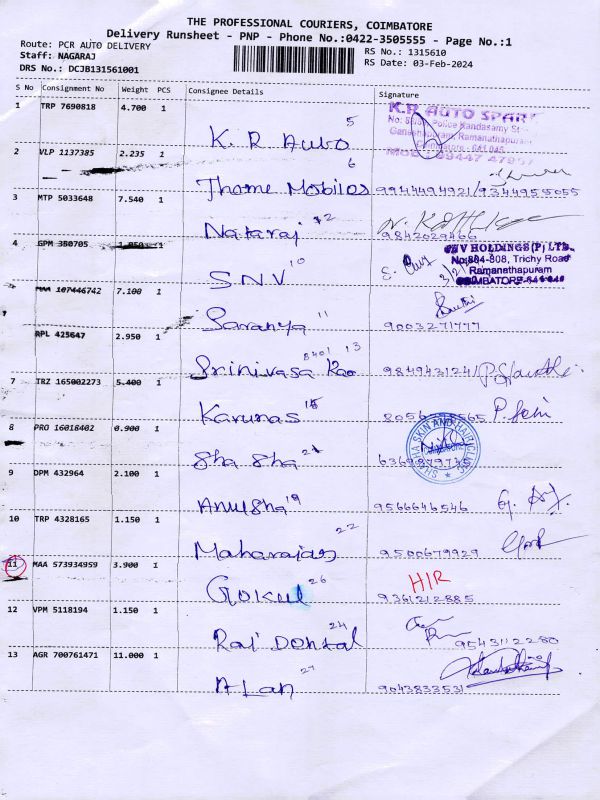 THE PROFESSIONAL COURIERS, COIMBATORE
Delivery Runsheet - PNP - Phone No.:0422-3505555 - Page No.:1
Route: PCR AUTO DELIVERY
RS No.: 1315610
Staff: NAGARAJ
RS Date: 03-Feb-2024
DRS No.: DCJB131561001
S No Consignment No Weight PCS Consignee Details Signature
1 TRP 7690818 4.700 1
K.R AUTO
K. R Auto 5
No: Police Kandasamy St
Ganeshapuram, Ramanathapuram
2 VLP 1137385 2.235 1
Thome Mobiles 6 9944494921/9344955055
3 MTP 5033648 7.540 1
Nataraj 12 9842029466
4 GPM 350705 1.050 1
S.N.V 10
SNV HOLDINGS (P) LTD.
No:804-808, Trichy Road
Ramanathapuram
COIMBATORE-641 045
MAA 107446742 7.100 1
Saranya 11 9003271777
RPL 425647 2.950 1
Srinivasa Rao 8401 13 984943124
7 TRZ 165002273 5.400 1
Karunas 15
8 PRO 16018402 0.900 1
Sha Sha 21
SKIN AND HAIR CLINIC
9 DPM 432964 2.100 1
Anusha 19 9566646546
10 TRP 4328165 1.150 1
Maharajas 22 9500679929
11 MAA 573934959 3.900 1
Gokul 26 HIR
9361212885
12 VPM 5118194 1.150 1
Raj Dental 24 9543112280
13 AGR 700761471 11.000 1
Alan 27 9043833531